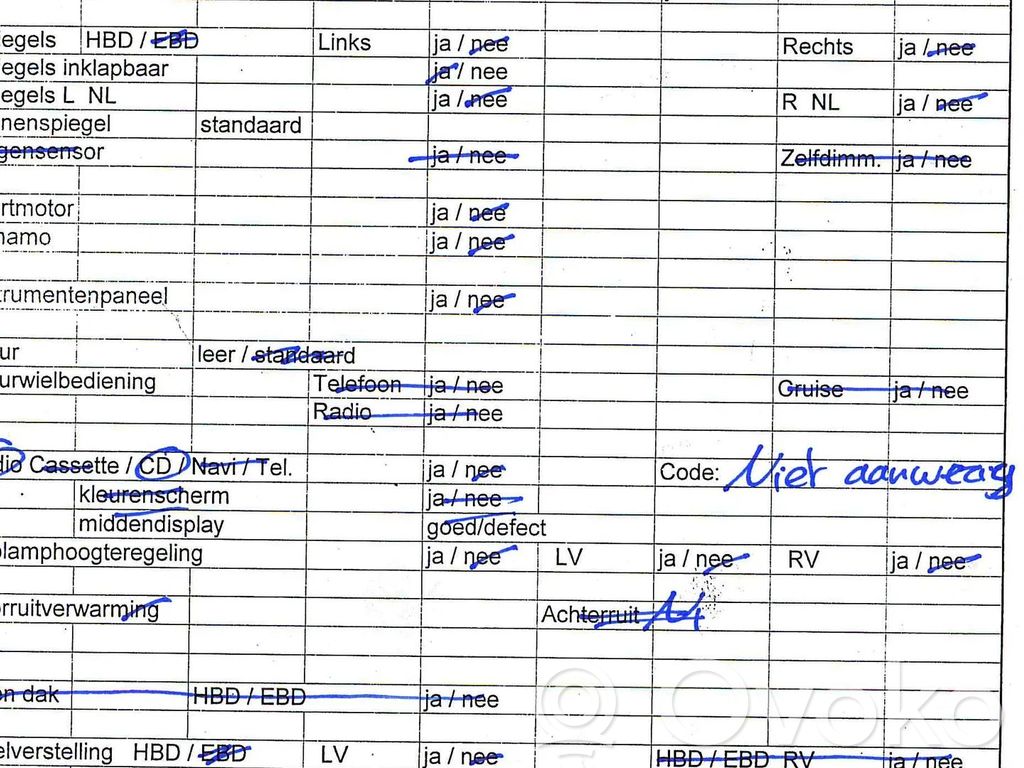 iegels HBD / EBD Links ja / nee Rechts ja / nee
iegels inklapbaar ja / nee
iegels L NL ja / nee R NL ja / nee
nenspiegel standaard
gensensor ja / nee Zelfdimm. ja / nee
rtmotor ja / nee
namo ja / nee
trumentenpaneel ja / nee
ur leer / standaard
urwielbediening Telefoon ja / nee Cruise ja / nee
Radio ja / nee
dio Cassette / CD / Navi / Tel. ja / nee Code: Niet aanwezig
kleurenscherm ja / nee
middendisplay goed/defect
plamphoogteregeling ja / nee LV ja / nee RV ja / nee
orruitverwarming Achterruit
on dak HBD / EBD ja / nee
elverstelling HBD / EBD LV ja / nee HBD / EBD RV ja / nee
Ovoko